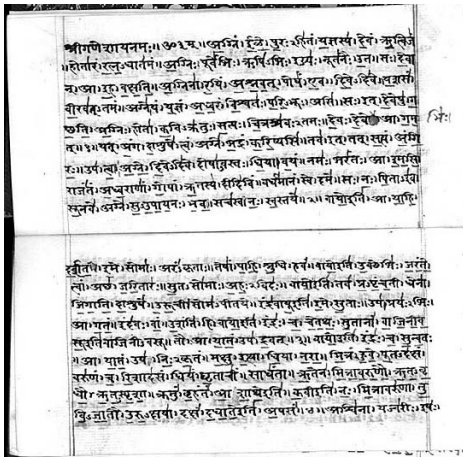 श्रीगणेशायनमः॥ॐ३म्॥अग्निं।ईळे।पुरःऽहितं।यज्ञस्य।देवं।ऋत्विजं
।होतारं।रत्नऽधातमं।अग्निः।पूर्वेभिः।ऋषिऽभिः।ईड्यः।नूतनैः।उत।सः।देवा
न्।आ।इह।वक्षति।अग्निना।रयिं।अश्नवत्।पोषं।एव।दिवेऽदिवे।यशसं
वीरवत्ऽतमं।अग्ने।यं।यज्ञं।अध्वरं।विश्वतः।परिऽभूः।असि।सः।इत्।देवेषु।ग
च्छति।अग्निः।होता।कविऽक्रतुः।सत्यः।चित्रश्रवःऽतमः।देवः।देवे।आ।गम
भिः।
त्॥१॥यत्।अंग।दाशुषे।त्वं।अग्ने।भद्रं।करिष्यसि।तव।इत्।तत्।सत्यं।अंगि
रः।उप।त्वा।अग्ने।दिवेऽदिवे।दोषाऽवस्तः।धिया।वयं।नमः।भरंतः।आ।इमसि।
राजंतं।अध्वराणां।गोपां।ऋतस्य।दीदिविं।वर्धमानं।स्वे।दमे।सः।नः।पिताऽइव।
सूनवे।अग्ने।सुऽउपायनः।भव।सचस्व।नः।स्वस्तये॥२॥वायोइति।आ।याहि।
दर्शत।इमे।सोमाः।अरंऽकृताः।तेषां।पाहि।श्रुधि।हवं।वायोइति।उक्थेभिः।जरंते
त्वां।अच्छ।जरितारः।सुतऽसोमाः।अहःऽविदः।वायोइति।तव।प्रऽपृंचती।धेना।
जिगाति।दाशुषे।उरूची।सोमऽपीतये।इंद्रवायूइति।इमे।सुताः।उप।प्रयःऽभिः।
आ।गतं।इंदवः।वां।उशंति।हि।वायोइति।इंद्रः।च।चेतथः।सुतानां।वाजिनीव
सूइतिवाजिनीऽवसू।तौ।आ।यातं।उप।द्रवत्॥३॥वायोइति।इंद्रः।च।सुन्वतः
।आ।यातं।उप।निःऽकृतं।मक्षु।इत्था।धिया।नरा।मित्रं।हुवे।पूतऽदक्षं।
वरुणं।च।रिशादसं।धियं।घृताचीं।साधंता।ऋतेन।मित्रावरुणौ।ऋतऽवृ
धौ।ऋतऽस्पृशा।क्रतुं।बृहंतं।आशाथेइति।कवीइति।नः।मित्रावरुणा।तु
विऽजातौ।उरुऽक्षया।दक्षं।दधातेइति।अपसं॥४॥अश्विना।यज्वरीः।इषः।